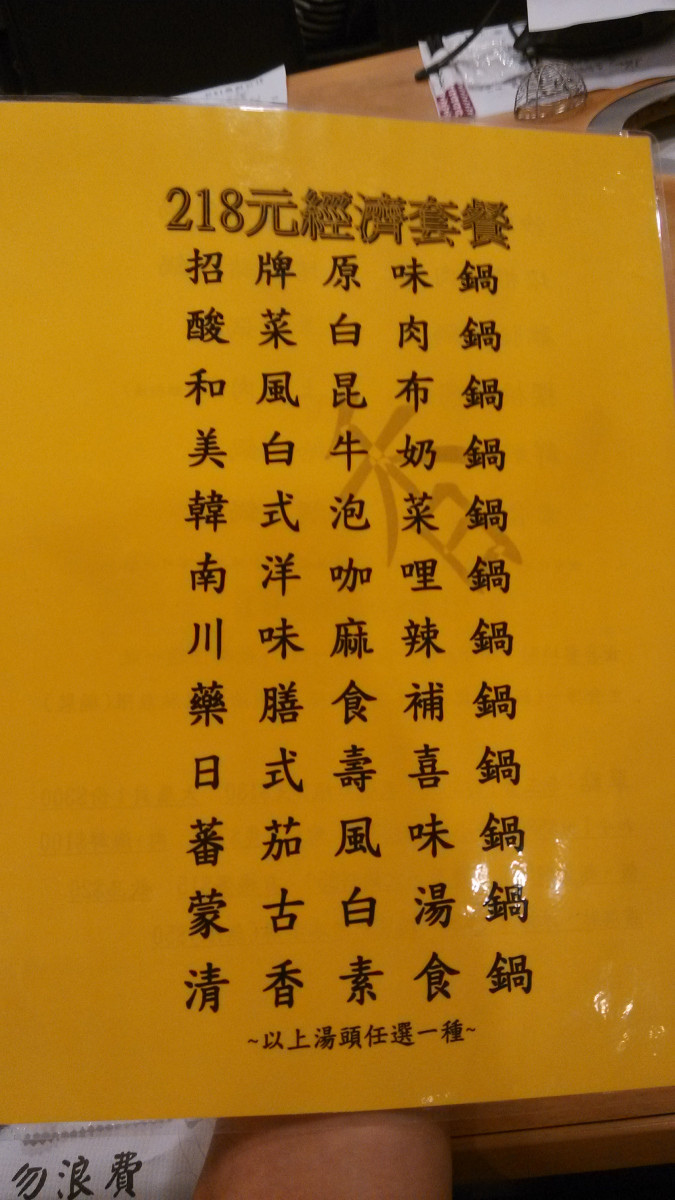 218元經濟套餐
招牌原味鍋
酸菜白肉鍋
和風昆布鍋
美白牛奶鍋
韓式泡菜鍋
南洋咖哩鍋
川味麻辣鍋
藥膳食補鍋
日式壽喜鍋
蕃茄風味鍋
蒙古白湯鍋
清香素食鍋
~以上湯頭任選一種~
勿浪費